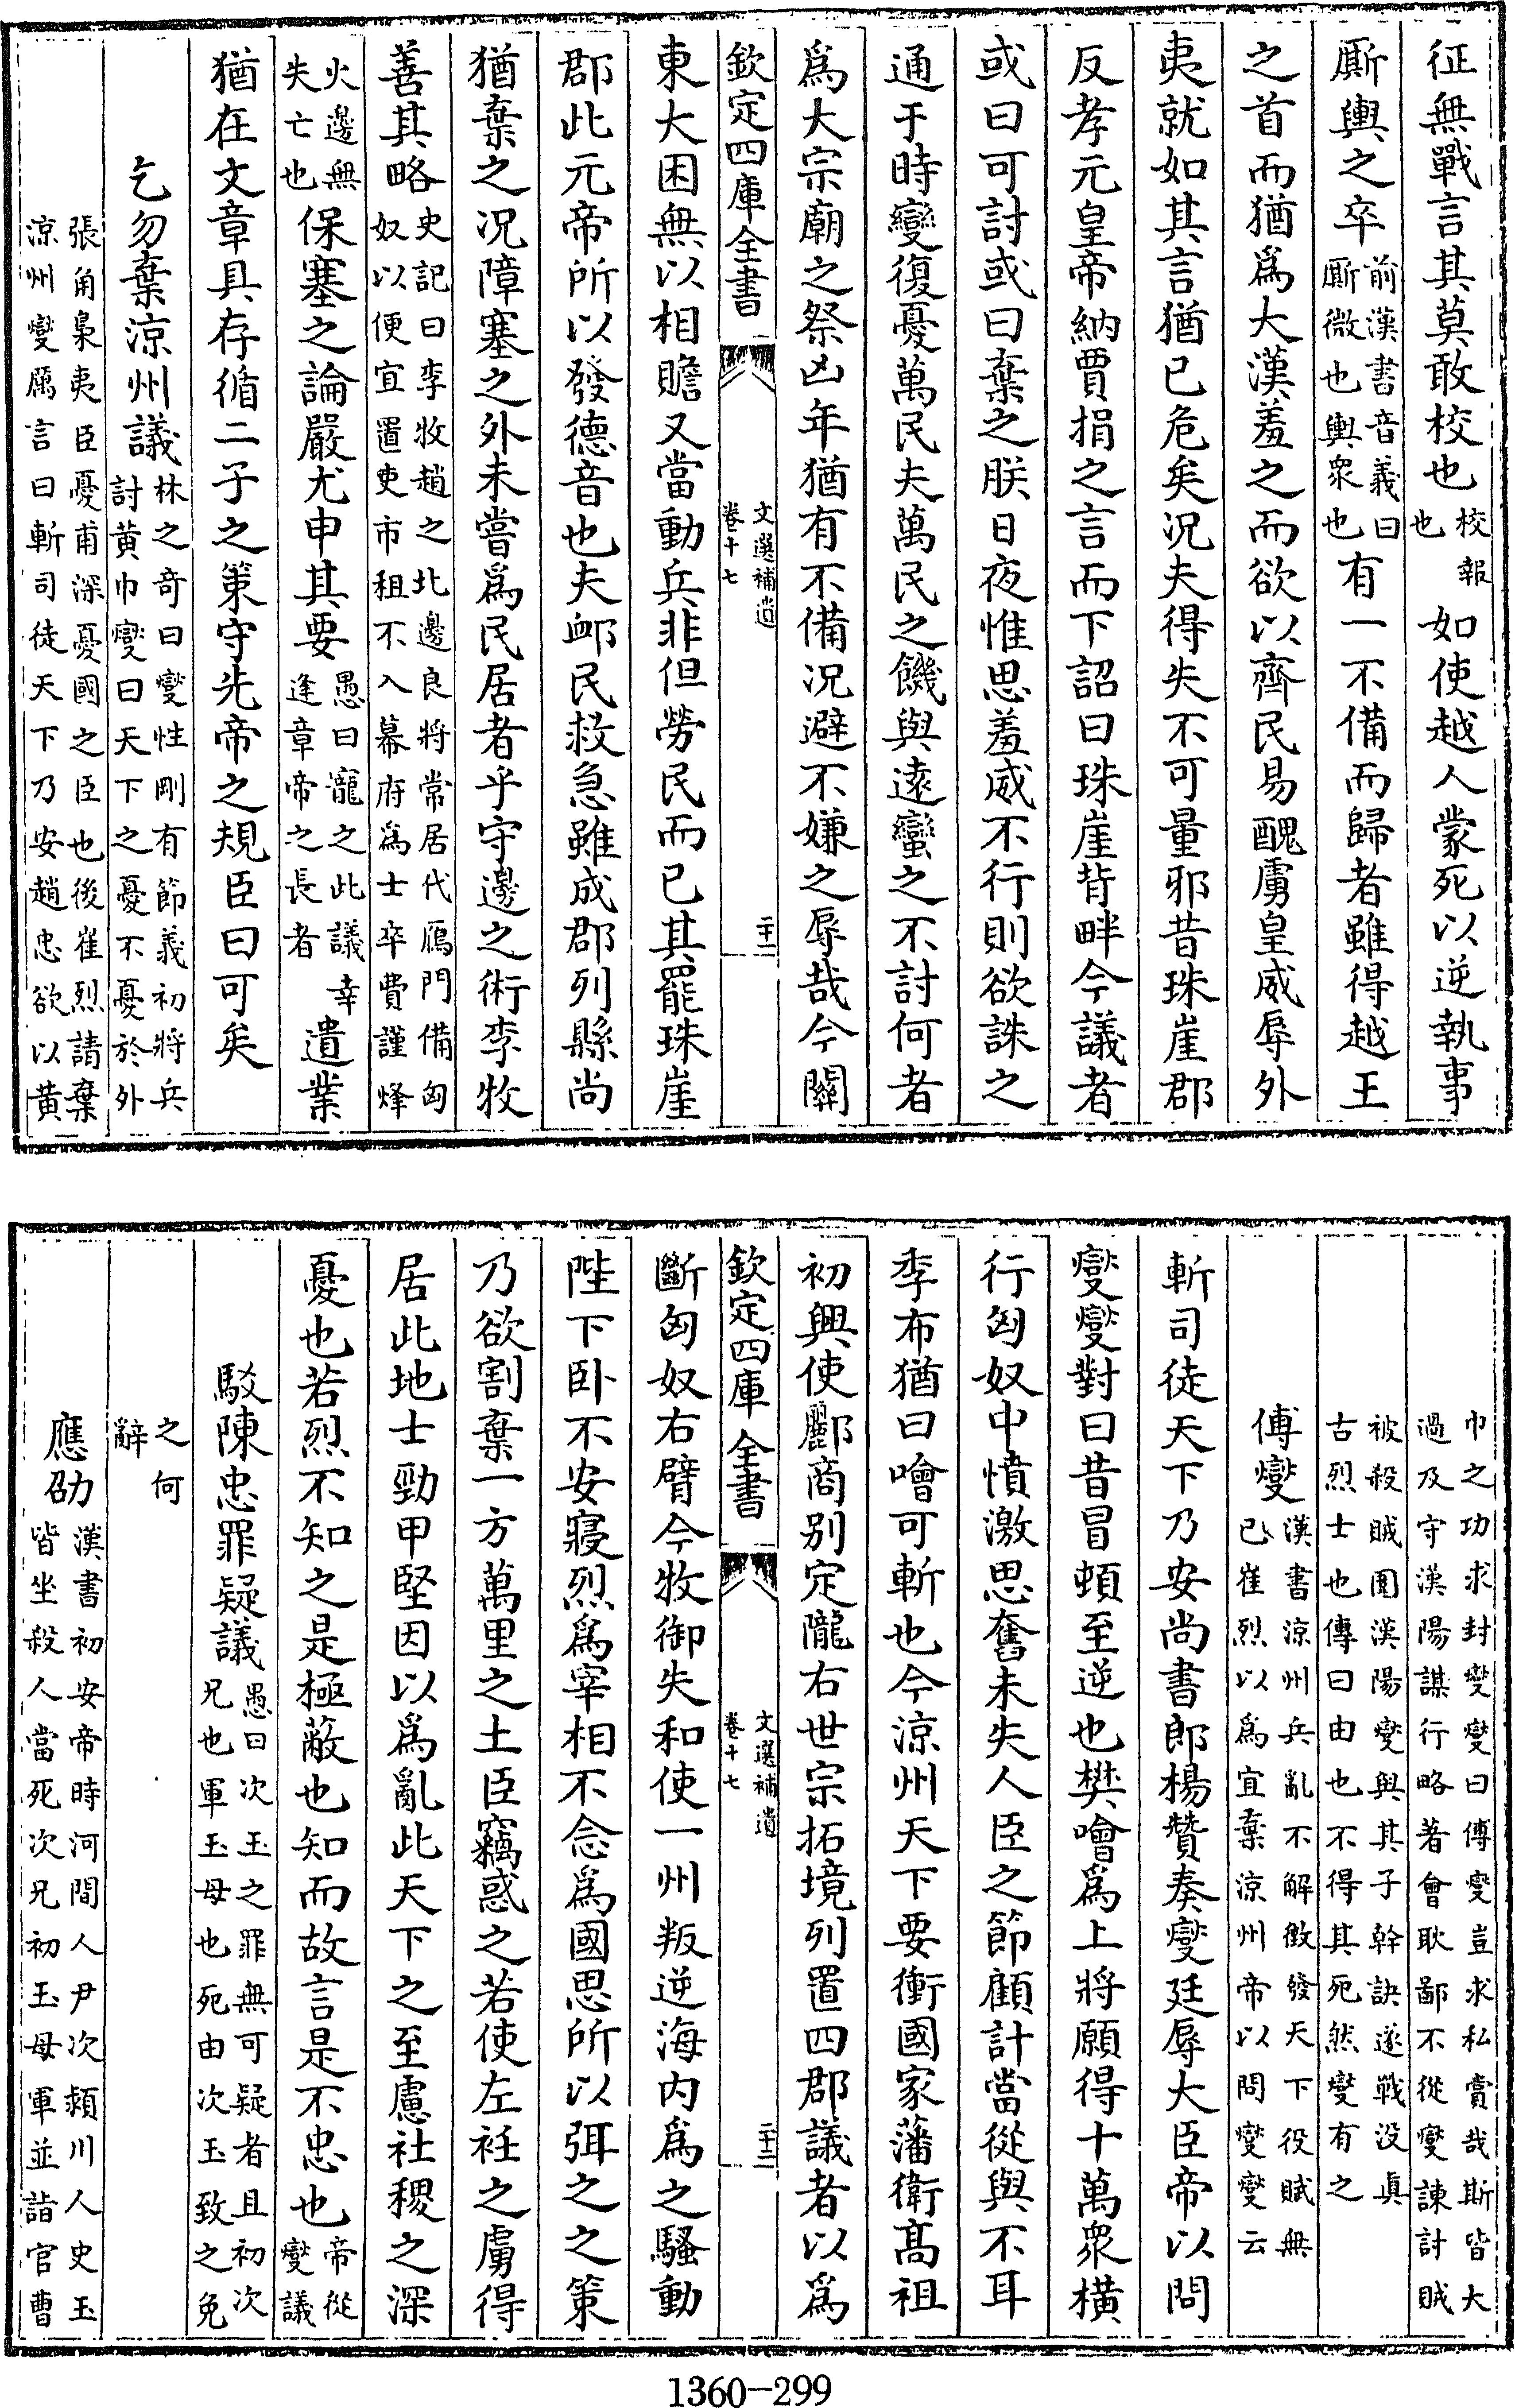 征無戰言其莫敢校也校報也如使越人蒙死以逆執事
厮輿之卒前漢書音義曰厮微也輿衆也有一不備而歸者雖得越王
之首而猶爲大漢羞之而欲以齊民易醜虜皇威辱外
夷就如其言猶已危矣况夫得失不可量邪昔珠崖郡
反孝元皇帝納賈捐之言而下詔曰珠崖背畔今議者
或曰可討或曰棄之朕日夜惟思羞威不行則欲誅之
通于時變復憂萬民夫萬民之饑與遠蠻之不討何者
爲大宗廟之祭凶年猶有不備况避不嫌之辱哉今關
欽定四庫全書 文選補遺卷十七 二十二
東大困無以相贍又當動兵非但勞民而已其罷珠崖
郡此元帝所以發德音也夫卹民救急雖成郡列縣尚
猶棄之况障塞之外未嘗爲民居者乎守邊之術李牧
善其略史記曰李牧趙之北邊良將常居代鴈門備匈奴以便宜置吏市租不入幕府爲士卒費謹烽
火邊無失亡也保塞之論嚴尤申其要愚曰寵之此議幸逢章帝之長者遺業
猶在文章具存循二子之策守先帝之規臣曰可矣
乞勿棄凉州議林之奇曰燮性剛有節義初將兵討黄巾燮曰天下之憂不憂於外
張角梟夷臣憂甫深憂國之臣也後崔烈請棄凉州燮厲言曰斬司徒天下乃安趙忠欲以黄
巾之功求封燮燮曰傅燮豈求私賞哉斯皆大過及守漢陽謀行略著會耿鄙不從燮諫討賊
被殺賊圍漢陽燮與其子幹訣遂戰没眞古烈士也傳曰由也不得其死然燮有之
傅燮漢書凉州兵亂不解徵發天下役賦無已崔烈以爲宜棄凉州帝以問燮燮云
斬司徒天下乃安尚書郎楊贊奏燮廷辱大臣帝以問
燮燮對曰昔冒頓至逆也樊噲爲上將願得十萬衆横
行匈奴中憤激思奮未失人臣之節顧計當從與不耳
季布猶曰噲可斬也今凉州天下要衝國家藩衛髙祖
初興使酈商别定隴右世宗拓境列置四郡議者以爲
欽定四庫全書 文選補遺卷十七 二十三
斷匈奴右臂今牧御失和使一州叛逆海内爲之騷動
陛下卧不安寢烈爲宰相不念爲國思所以弭之之策
乃欲割棄一方萬里之土臣竊惑之若使左衽之虜得
居此地士勁甲堅因以爲亂此天下之至慮社稷之深
憂也若烈不知之是極蔽也知而故言是不忠也帝從燮議
駁陳忠罪疑議愚曰次玉之罪無可疑者且初次兄也軍玉母也死由次玉致之免
之何辭
應劭漢書初安帝時河間人尹次潁川人史玉皆坐殺人當死次兄初玉母軍並詣官曹
1360—299